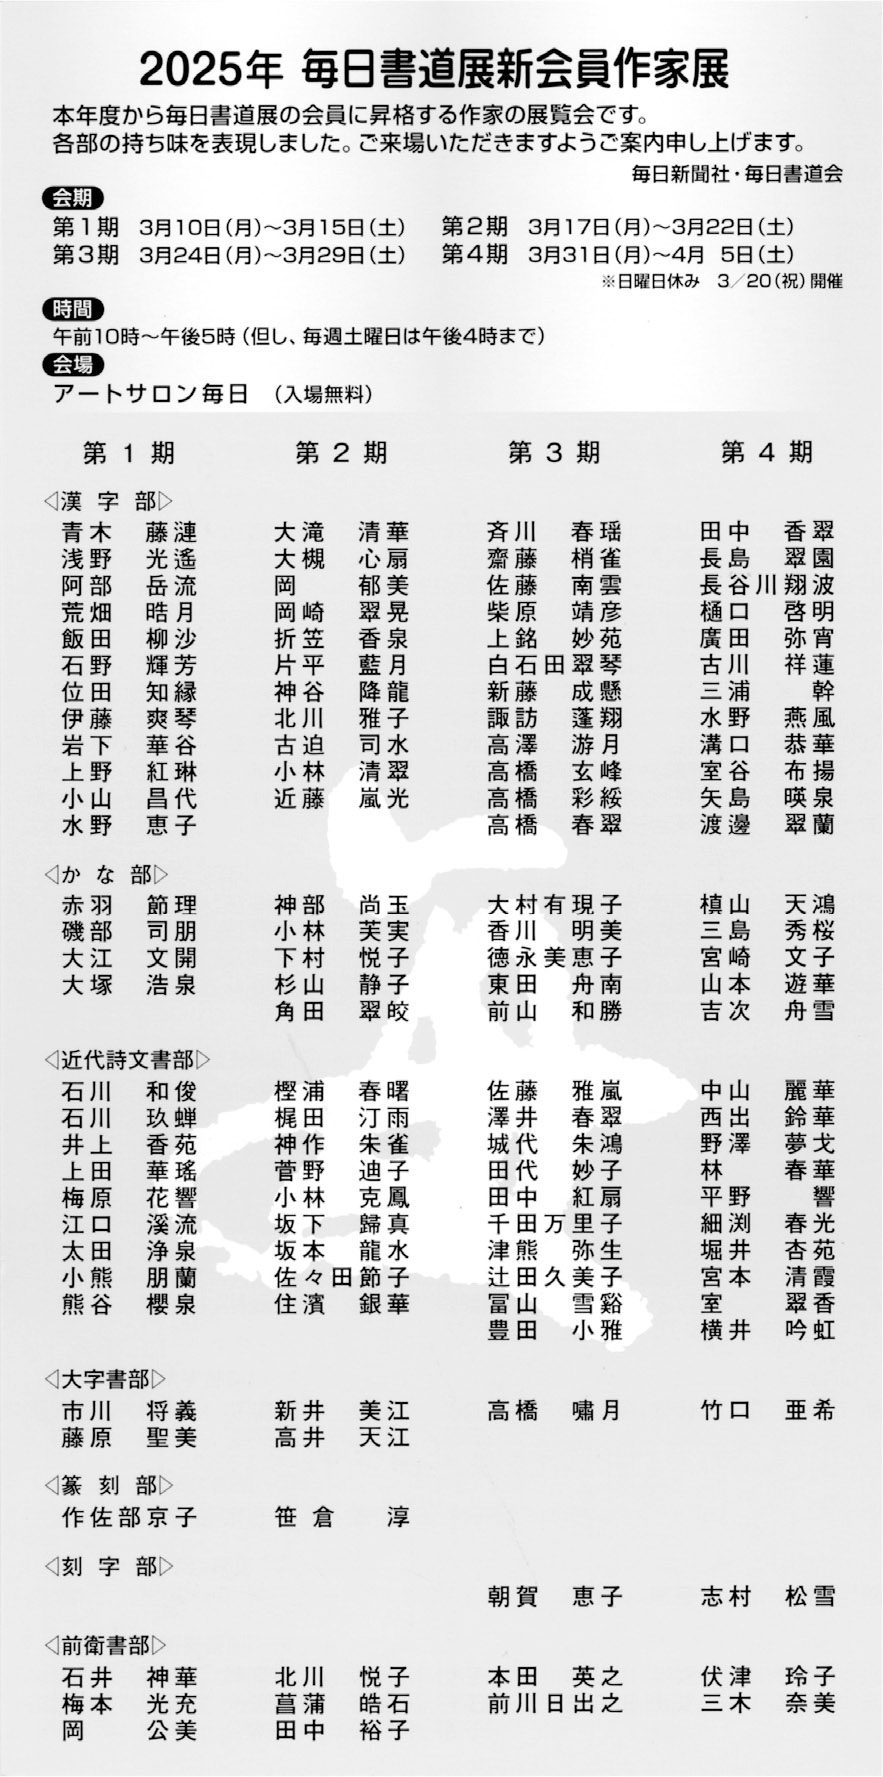 2025年 毎日書道展新会員作家展
本年度から毎日書道展の会員に昇格する作家の展覧会です。
各部の持ち味を表現しました。ご来場いただきますようご案内申し上げます。
毎日新聞社・毎日書道会
会期
第1期 3月10日(月)～3月15日(土) 第2期 3月17日(月)～3月22日(土)
第3期 3月24日(月)～3月29日(土) 第4期 3月31日(月)～4月 5日(土)
※日曜日休み 3／20(祝)開催
時間
午前10時～午後5時(但し、毎週土曜日は午後4時まで)
会場
アートサロン毎日 (入場無料)
第1期 第2期 第3期 第4期
◁漢字部▷
青木 藤漣 大滝 清華 斉川 春瑶 田中 香翠
浅野 光遙 大槻 心扇 齋藤 梢雀 長島 翠園
阿部 岳流 岡 郁美 佐藤 南雲 長谷川翔波
荒畑 晧月 岡崎 翠晃 柴原 靖彦 樋口 啓明
飯田 柳沙 折笠 香泉 上銘 妙苑 廣田 弥宵
石野 輝芳 片平 藍月 白石田翠琴 古川 祥蓮
位田 知縁 神谷 降龍 新藤 成懸 三浦 幹
伊藤 爽琴 北川 雅子 諏訪 蓬翔 水野 燕風
岩下 華谷 古迫 司水 高澤 游月 溝口 恭華
上野 紅琳 小林 清翠 高橋 玄峰 室谷 布揚
小山 昌代 近藤 嵐光 高橋 彩綏 矢島 暎泉
水野 恵子 高橋 春翠 渡邊 翠蘭
◁かな部▷
赤羽 節理 神部 尚玉 大村有現子 槙山 天鴻
磯部 司朋 小林 芙実 香川 明美 三島 秀桜
大江 文開 下村 悦子 徳永美恵子 宮崎 文子
大塚 浩泉 杉山 静子 東田 舟南 山本 遊華
角田 翠皎 前山 和勝 吉次 舟雪
◁近代詩文書部▷
石川 和俊 樫浦 春曙 佐藤 雅嵐 中山 麗華
石川 玖蝉 梶田 汀雨 澤井 春翠 西出 鈴華
井上 香苑 神作 朱雀 城代 朱鴻 野澤 夢戈
上田 華瑤 菅野 迪子 田代 妙子 林 春華
梅原 花響 小林 克鳳 田中 紅扇 平野 響
江口 溪流 坂下 歸真 千田万里子 細渕 春光
太田 浄泉 坂本 龍水 津熊 弥生 堀井 杏苑
小熊 朋蘭 佐々田節子 辻田久美子 宮本 清霞
熊谷 櫻泉 住濱 銀華 冨山 雪谿 室 翠香
豊田 小雅 横井 吟虹
◁大字書部▷
市川 将義 新井 美江 高橋 嘯月 竹口 亜希
藤原 聖美 高井 天江
◁篆刻部▷
作佐部京子 笹倉 淳
◁刻字部▷
朝賀 恵子 志村 松雪
◁前衛書部▷
石井 神華 北川 悦子 本田 英之 伏津 玲子
梅本 光充 菖蒲 皓石 前川日出之 三木 奈美
岡 公美 田中 裕子